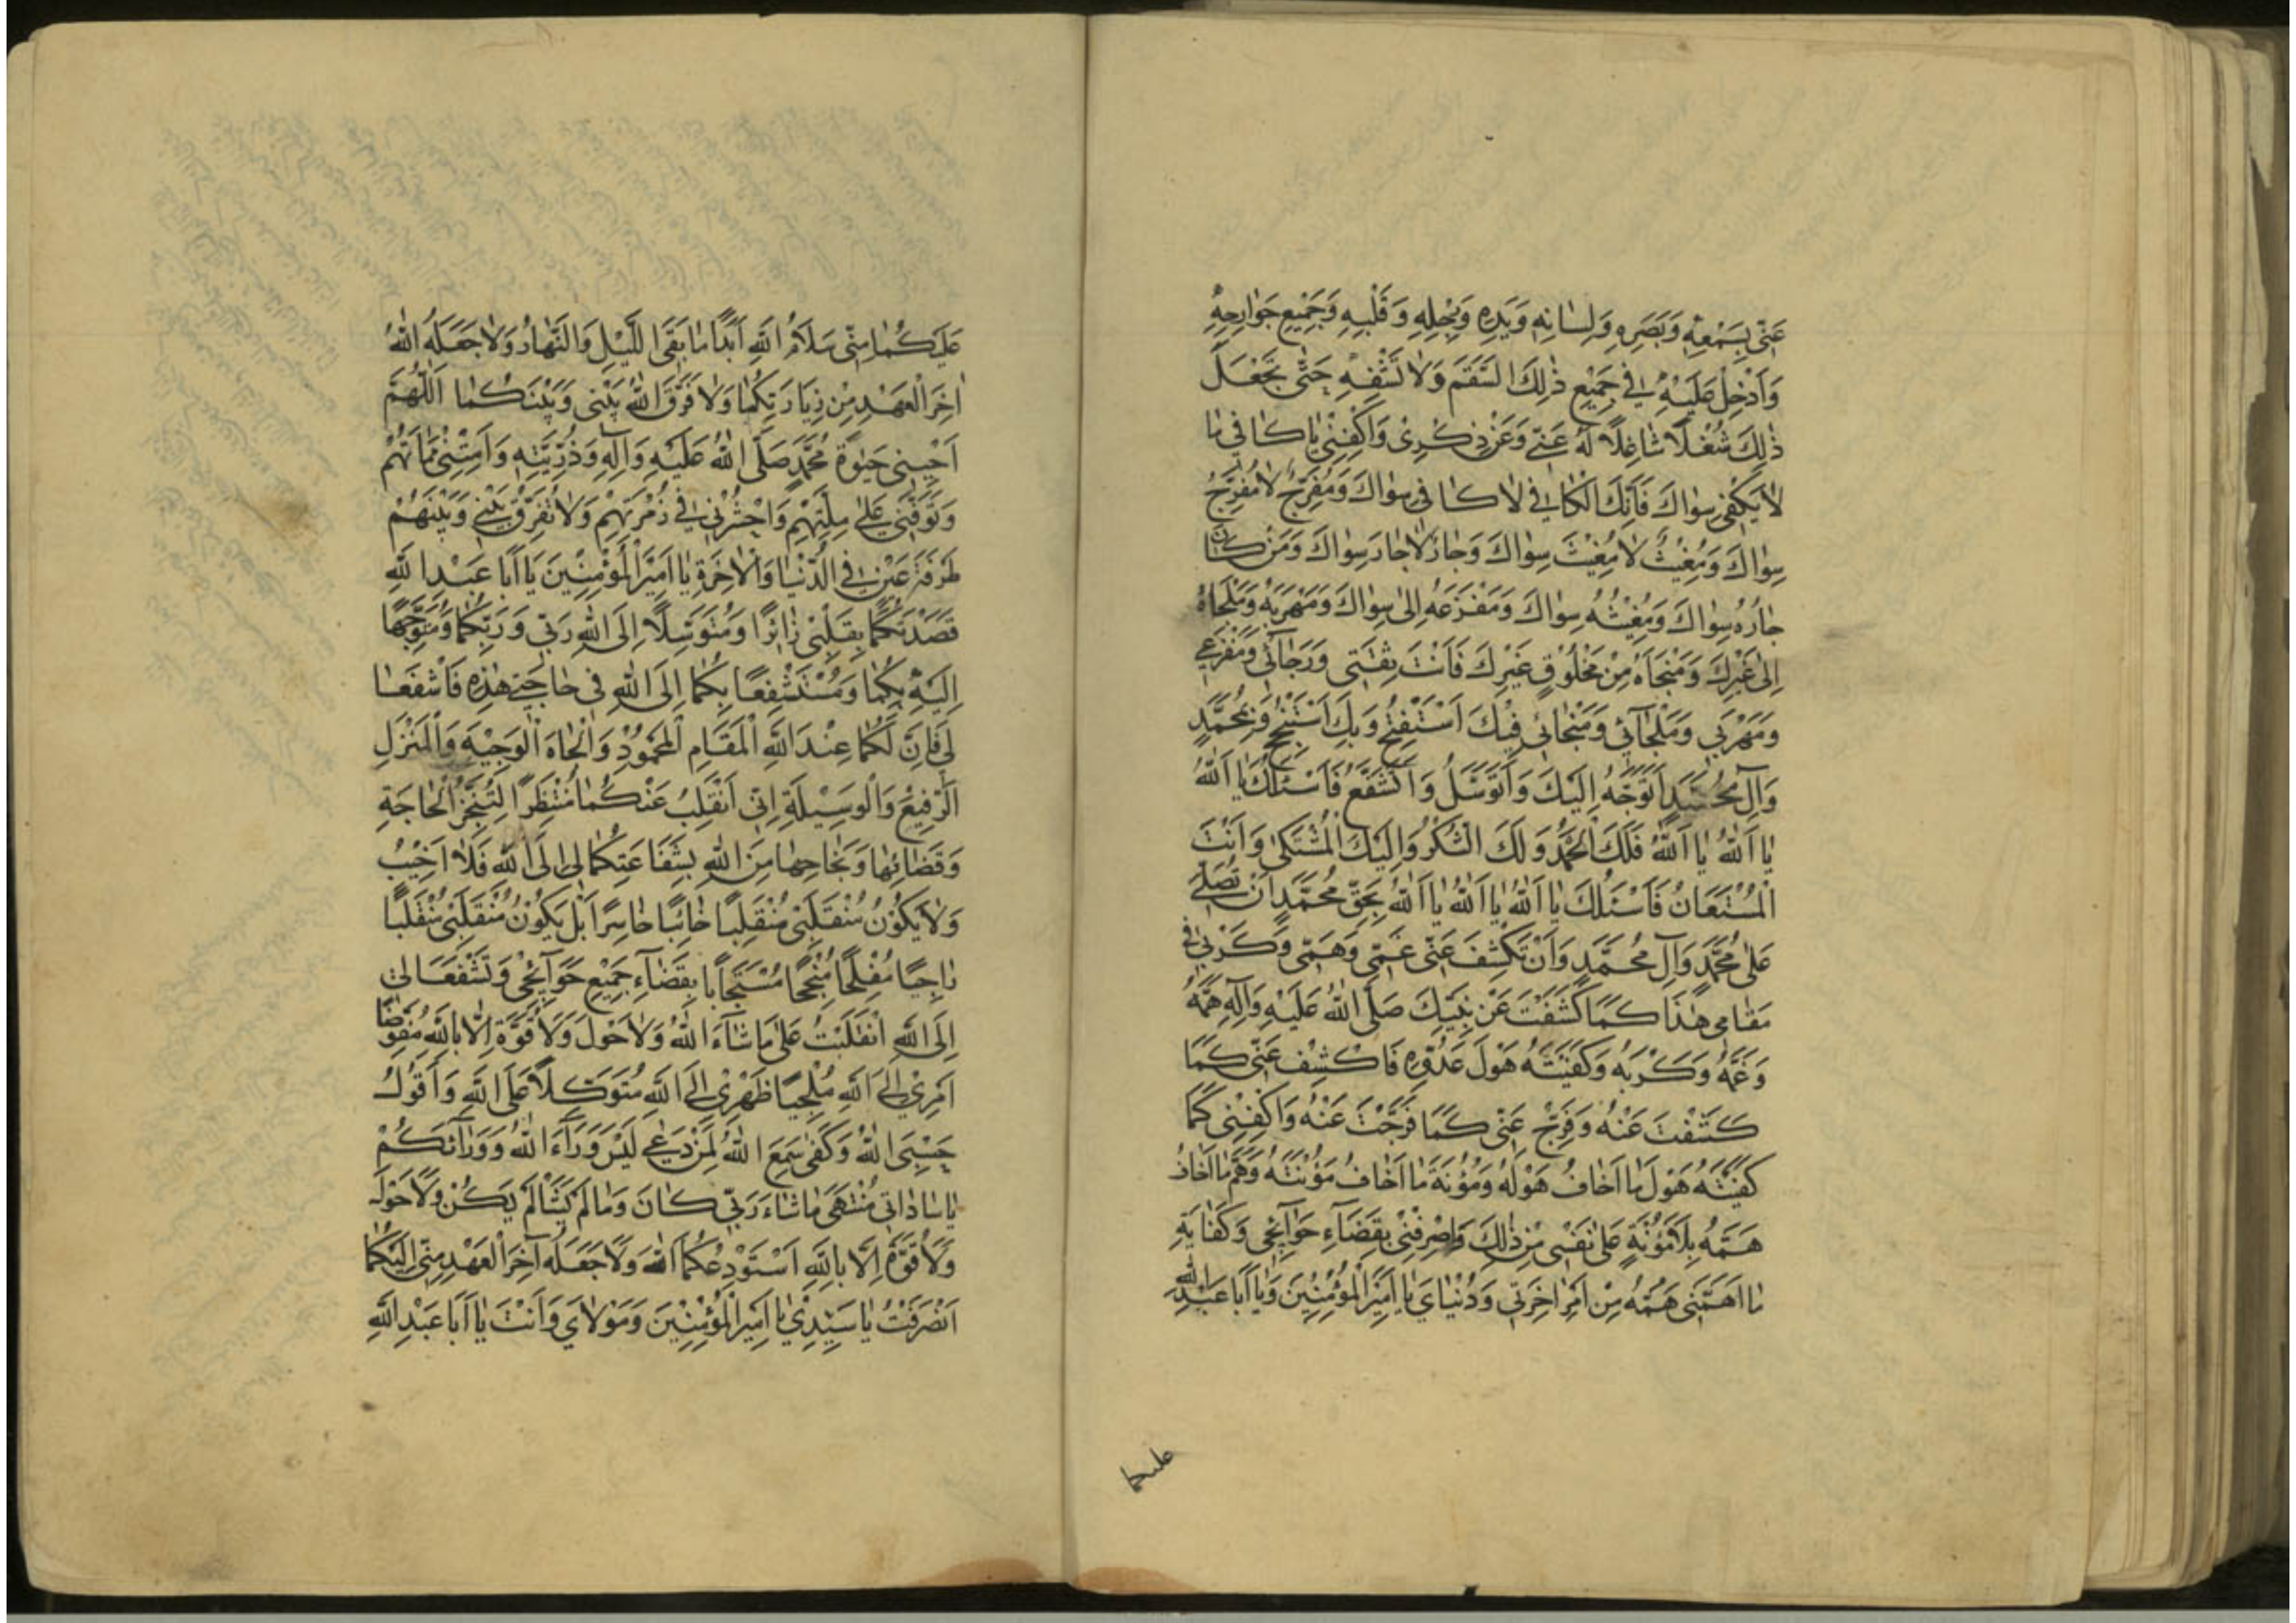 عَنّى بِسَمْعِهِ وَبَصَرِهِ وَلِسٰانِهِ وَيَدِهِ وَرِجْلِهِ وَقَلْبِهِ وَجَمِيْعِ جَوٰارِحِهِ
وَأَدْخِلْ عَلَيْهِ فِي جَمِيْعِ ذٰلِكَ السُّقْمَ وَلاٰ تَشْفِهِ حَتّٰى تَجْعَلَ
ذٰلِكَ شُغْلًا شٰاغِلًا لَهُ عَنّي وَعَنْ ذِكْرِى وَاكْفِنِي يٰا كٰافِي مٰا
لاٰ يَكْفِى سِوٰاكَ فَاِنَّكَ الْكٰافِي لاٰ كٰافِىَ سِوٰاكَ وَمُفَرِّجٌ لاٰ مُفَرِّجَ
سِوٰاكَ وَمُغِيْثٌ لاٰ مُغِيْثَ سِوٰاكَ وَجٰارٌ لاٰ جٰارَ سِوٰاكَ وَمَنْ كٰانَ
جٰارُهُ سِوٰاكَ وَمُغِيْثُهُ سِوٰاكَ وَمَفْزَعُهُ اِلىٰ سِوٰاكَ وَمَهْرَبُهُ وَمَلْجَاهُ
اِلىٰ غَيْرِكَ وَمَنْجَاهُ مِنْ مَخْلُوْقٍ غَيْرِكَ فَاَنْتَ ثِقَتِى وَرَجٰائِى وَمَفْزَعِي
وَمَهْرَبِي وَمَلْجَآئِي وَمَنْجٰائِي فَبِكَ اَسْتَفْتِحُ وَبِكَ اَسْتَنْجِحُ وَبِمُحَمَّدٍ
وَآلِ مُحَمَّدٍ اَتَوَجَّهُ اِلَيْكَ وَأَتَوَسَّلُ وَأَتَشَفَّعُ فَاَسْئَلُكَ يٰا اَللّٰهُ
يٰا اَللّٰهُ يٰا اَللّٰهُ فَلَكَ الْحَمْدُ وَلَكَ الشُّكْرُ وَاِلَيْكَ الْمُشْتَكىٰ وَأَنْتَ
الْمُسْتَعَانُ فَاَسْئَلُكَ يٰا اَللّٰهُ يٰا اَللّٰهُ يٰا اَللّٰهُ بِحَقِّ مُحَمَّدٍ اَنْ تُصَلِّيَ
عَلىٰ مُحَمَّدٍ وَآلِ مُحَمَّدٍ وَأَنْ تَكْشِفَ عَنّى غَمّى وَهَمّى وَكَرْبِي فى
مَقٰامِى هٰذَا كَمَا كَشَفْتَ عَنْ نَبِيِّكَ صَلَّى اللّٰهُ عَلَيْهِ وَآلِهِ هَمَّهُ
وَغَمَّهُ وَكَرْبَهُ وَكَفَيْتَهُ هَوْلَ عَدُوِّهِ فَاكْشِفْ عَنّى كَمَا
كَشَفْتَ عَنْهُ وَفَرِّجْ عَنّى كَمَا فَرَّجْتَ عَنْهُ وَاكْفِنِى كَمَا
كَفَيْتَهُ هَوْلَ مٰا اَخٰافُ هَوْلَهُ وَمَؤُنَةَ مٰا اَخٰافُ مَؤُنَتَهُ وَهَمَّ مٰا اَخٰافُ
هَمَّهُ بِلاٰ مَؤُنَةٍ عَلىٰ نَفْسِى مِنْ ذٰلِكَ وَاصْرِفْنِى بِقَضٰآءِ حَوٰآئِجِى وَكِفٰايَةِ
مٰا اَهَمَّنِى هَمُّهُ مِنْ اَمْرِ اٰخِرَتِي وَدُنْيٰايَ يٰا اَمِيْرَ الْمُؤْمِنِيْنَ وَيٰا أَبٰا عَبْدِ اللّٰهِ
عليكما
عَلَيْكُمٰا مِنّى سَلاٰمُ اللّٰهِ اَبَدًا مٰا بَقِىَ اللَّيْلُ وَالنَّهٰارُ وَلاٰ جَعَلَهُ اللّٰهُ
اٰخِرَ الْعَهْدِ مِنْ زِيٰارَتِكُمٰا وَلاٰ فَرَّقَ اللّٰهُ بَيْنِى وَبَيْنَكُمٰا اَللّٰهُمَّ
اَحْيِنِى حَيٰوةَ مُحَمَّدٍ صَلَّى اللّٰهُ عَلَيْهِ وَآلِهِ وَذُرِّيَّتِهِ وَاَمِتْنِى مَمٰاتَهُمْ
وَتَوَفَّنِي عَلىٰ مِلَّتِهِمْ وَاحْشُرْنِي فِي زُمْرَتِهِمْ وَلاٰ تُفَرِّقْ بَيْنِي وَبَيْنَهُمْ
طَرْفَةَ عَيْنٍ فِي الدُّنْيٰا وَالْاٰخِرَةِ يٰا اَمِيْرَ الْمُؤْمِنِيْنَ يٰا اَبٰا عَبْدِ اللّٰهِ
قَصَدْتُكُمٰا بِقَلْبِى زٰائِرًا وَمُتَوَسِّلًا اِلَى اللّٰهِ رَبّى وَرَبِّكُمٰا وَمُتَوَجِّهًا
اِلَيْهِ بِكُمٰا وَمُسْتَشْفِعًا بِكُمٰا اِلَى اللّٰهِ فى حٰاجَتِى هٰذِهِ فَاشْفَعٰا
لِي فَاِنَّ لَكُمٰا عِنْدَ اللّٰهِ الْمَقٰامَ الْمَحْمُوْدَ وَالْجٰاهَ الْوَجِيْهَ وَالْمَنْزِلَ
الرَّفِيْعَ وَالْوَسِيْلَةَ اِنّى اَنْقَلِبُ عَنْكُمٰا مُنْتَظِرًا لِتَنَجُّزِ الْحٰاجَةِ
وَقَضٰائِهٰا وَنَجٰاحِهٰا مِنَ اللّٰهِ بِشَفٰاعَتِكُمٰا لِى اِلَى اللّٰهِ فَلاٰ اَخِيْبُ
وَلاٰ يَكُوْنُ مُنْقَلَبِى مُنْقَلَبًا خٰائِبًا خٰاسِرًا بَلْ يَكُوْنُ مُنْقَلَبِى مُنْقَلَبًا
رٰاجِيًا مُفْلِحًا مُنْجِحًا مُسْتَجٰابًا بِقَضٰآءِ جَمِيْعِ حَوٰآئِجِى وَتَشْفَعَا لِي
اِلَى اللّٰهِ اَنْقَلَبْتُ عَلىٰ مٰا شٰآءَ اللّٰهُ وَلاٰ حَوْلَ وَلاٰ قُوَّةَ اِلاّٰ بِاللّٰهِ مُفَوِّضًا
اَمْرِيْ اِلَى اللّٰهِ مُلْجِئًا ظَهْرِى اِلَى اللّٰهِ مُتَوَكِّلًا عَلَى اللّٰهِ وَأَقُوْلُ
حَسْبِىَ اللّٰهُ وَكَفىٰ سَمِعَ اللّٰهُ لِمَنْ دَعٰي لَيْسَ وَرَآءَ اللّٰهِ وَوَرٰآئَكُمْ
يٰا سٰادٰاتِى مُنْتَهىٰ مٰا شٰاءَ رَبّى كٰانَ وَمٰا لَمْ يَشَأْ لَمْ يَكُنْ وَلاٰ حَوْلَ
وَلاٰ قُوَّةَ اِلاّٰ بِاللّٰهِ اَسْتَوْدِعُكُمَا اللّٰهَ وَلاٰ جَعَلَهُ آخِرَ الْعَهْدِ مِنّى اِلَيْكُمٰا
اَنْصَرَفْتُ يٰا سَيِّدِيْ يٰا اَمِيْرَ الْمُؤْمِنِيْنَ وَمَوْلاٰيَ وَأَنْتَ يٰا أَبٰا عَبْدِ اللّٰهِ